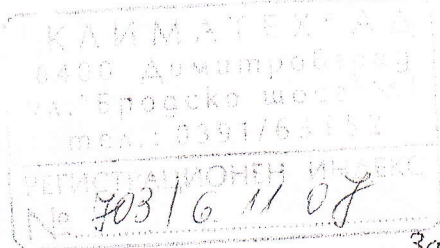 КЛИМАТЕХ АД
6400 Димитровград
ул. Бродско шосе
тел.: 0391/6
РЕГИСТРАЦИОНЕН ИНДЕКС
№ 703/6 11 07